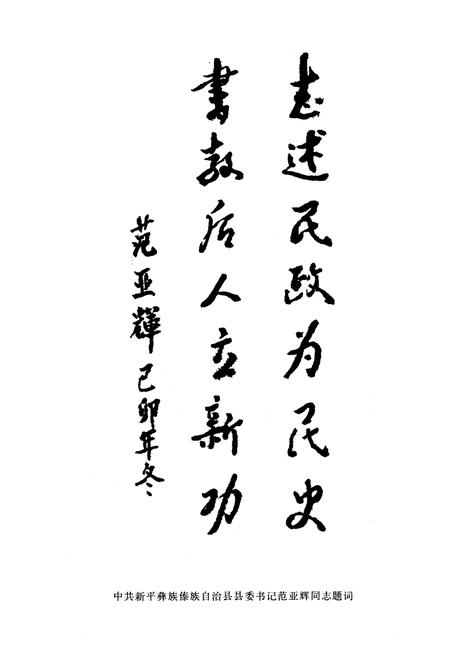 志述民政为民史
書教后人立新功
范亚輝己卯年冬
中共新平彝族傣族自治县县委书记范亚辉同志题词